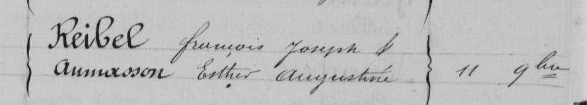 Reibel françois Joseph &
Aumasson Esther Augustine 11 9bre